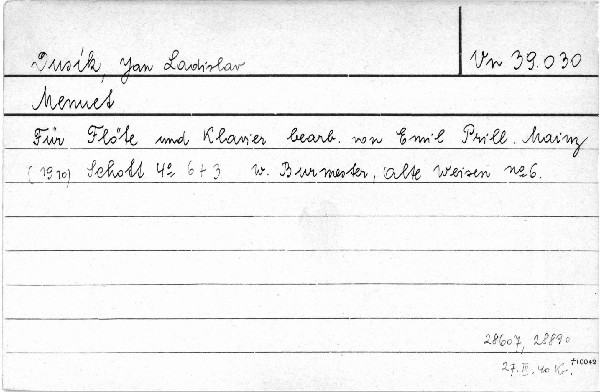 Dusík, Jan Ladislav
Vn 39.030
Menuet
Für Flöte und Klavier bearb. von Emil Prill. Mainz
(1910) Schott 4º 6+3 W. Burmester, Alte Weisen No 6.
28607, 28890
27. III. 40 Kr.
†10042